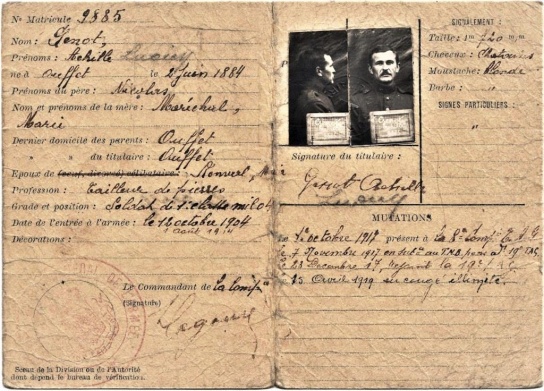 N° Matricule 9885
Nom: Genot,
Prénoms: Achille
né à Ouffet le 2 juin 1884
Prénoms du père: Nicolas,
Nom et prénoms de la mère: Maréchal,
Marie
Dernier domicile des parents: Ouffet
" " du titulaire: Ouffet
Epoux de (veuf, divorcé) célibataire:
Profession: tailleur de pierres
Grade et position: Soldat de 1e classe mil 04
Date de l'entrée à l'armée: le 1r octobre 1904
1 août 1914
Décorations:
Le Commandant de la Comp
(Signature)
Sceau de la Division ou de l'Autorité
dont dépend le bureau de vérification.
SIGNALEMENT:
Taille: 1m 720 m/m
Cheveux: Chatains
Moustache: blonde
Barbe: "
SIGNES PARTICULIERS:
"
Signature du titulaire:
Genot Achille
MUTATIONS
Le 1r octobre 1917 présent à la Comp
Le 7 Novembre 1917
Le 23 Decembre 17, la 19
25 Avril 1919 en congé illimité.